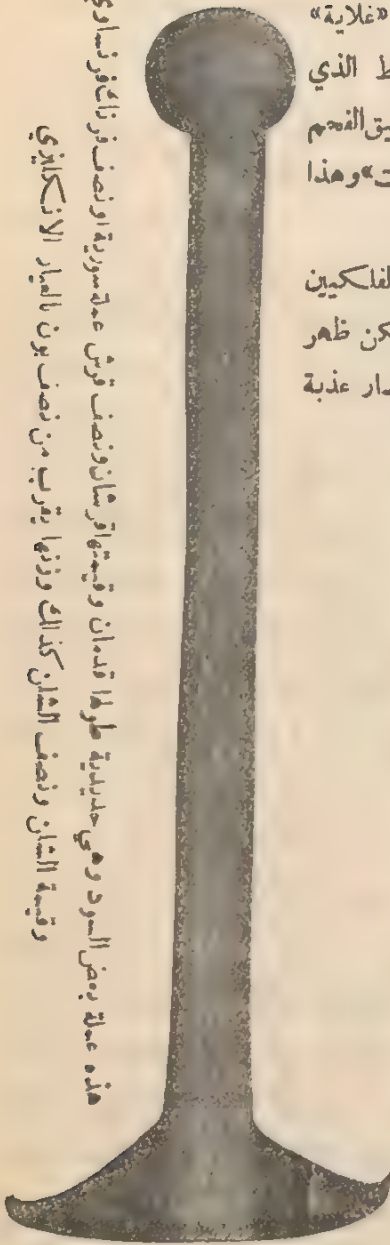 «غلاية»
ط الذي
يق الفحم
ت» وهذا
لفلكيين
كن ظهر
دار عذبة
هذه عملة بعض السود وهي حديدية طولها قدمان وقيمتها قرشان ونصف قرش عملة سورية او نصف فرنك فرنساوي
وقيمة الشلن ونصف الشلن كذلك وزنها يقرب من نصف بون بالعيار الانكليزي